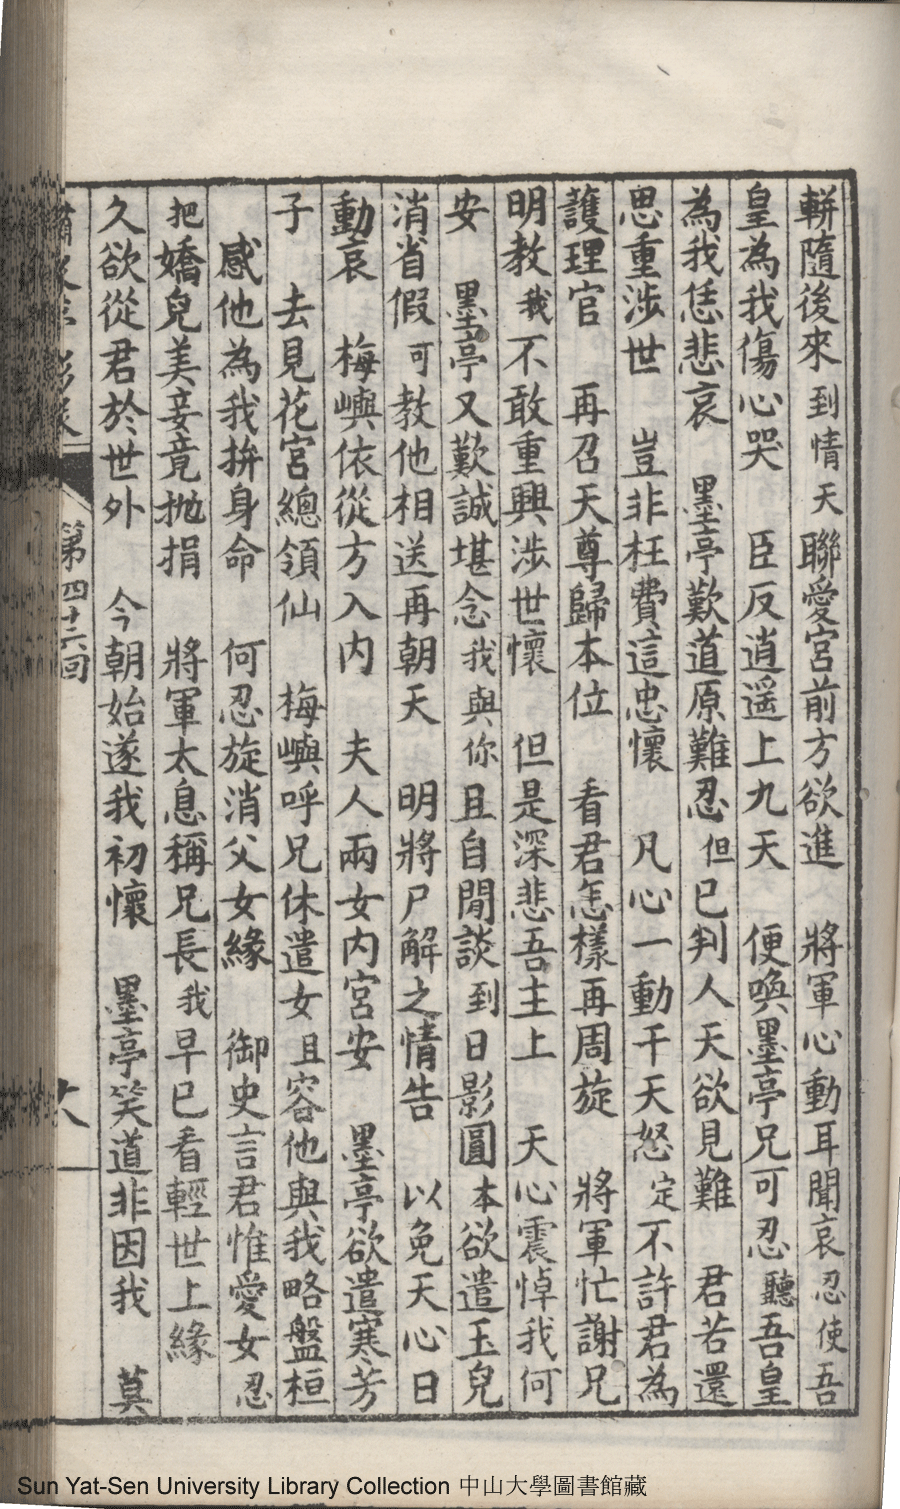 輧隨後來到情天聯愛宮前方欲進　將軍心動耳聞哀忍使吾
皇為我傷心哭　臣反逍遥上九天　便喚墨亭兄可忍聽吾皇
為我恁悲哀　墨亭歎道原難忍但已判人天欲見難　君若還
思重涉世　豈非枉費這忠懷　凡心一動千天怒定不許君為
護理官　再召天尊歸本位　看君怎樣再周旋　將軍忙謝兄
明教我不敢重興涉世懷　但是深悲吾主上　天心震悼我何
安　墨亭又歎誠堪念我與你且自閒談到日影圓本欲遣玉兒
消省假可教他相送再朝天　明將尸解之情告　以免天心日
動哀　梅嶼依從方入内　夫人兩女内宮安　墨亭欲遣寒芳
子　去見花宮總領仙　梅嶼呼兄休遣女且容他與我略盤桓
感他為我拚身命　何忍旋消父女緣　御史言君惟愛女忍
把嬌兒美妾竟抛捐　將軍太息稱兄長我早已看輕世上緣
久欲從君於世外　今朝始遂我初懷　墨亭笑道非因我　莫
第四十六回